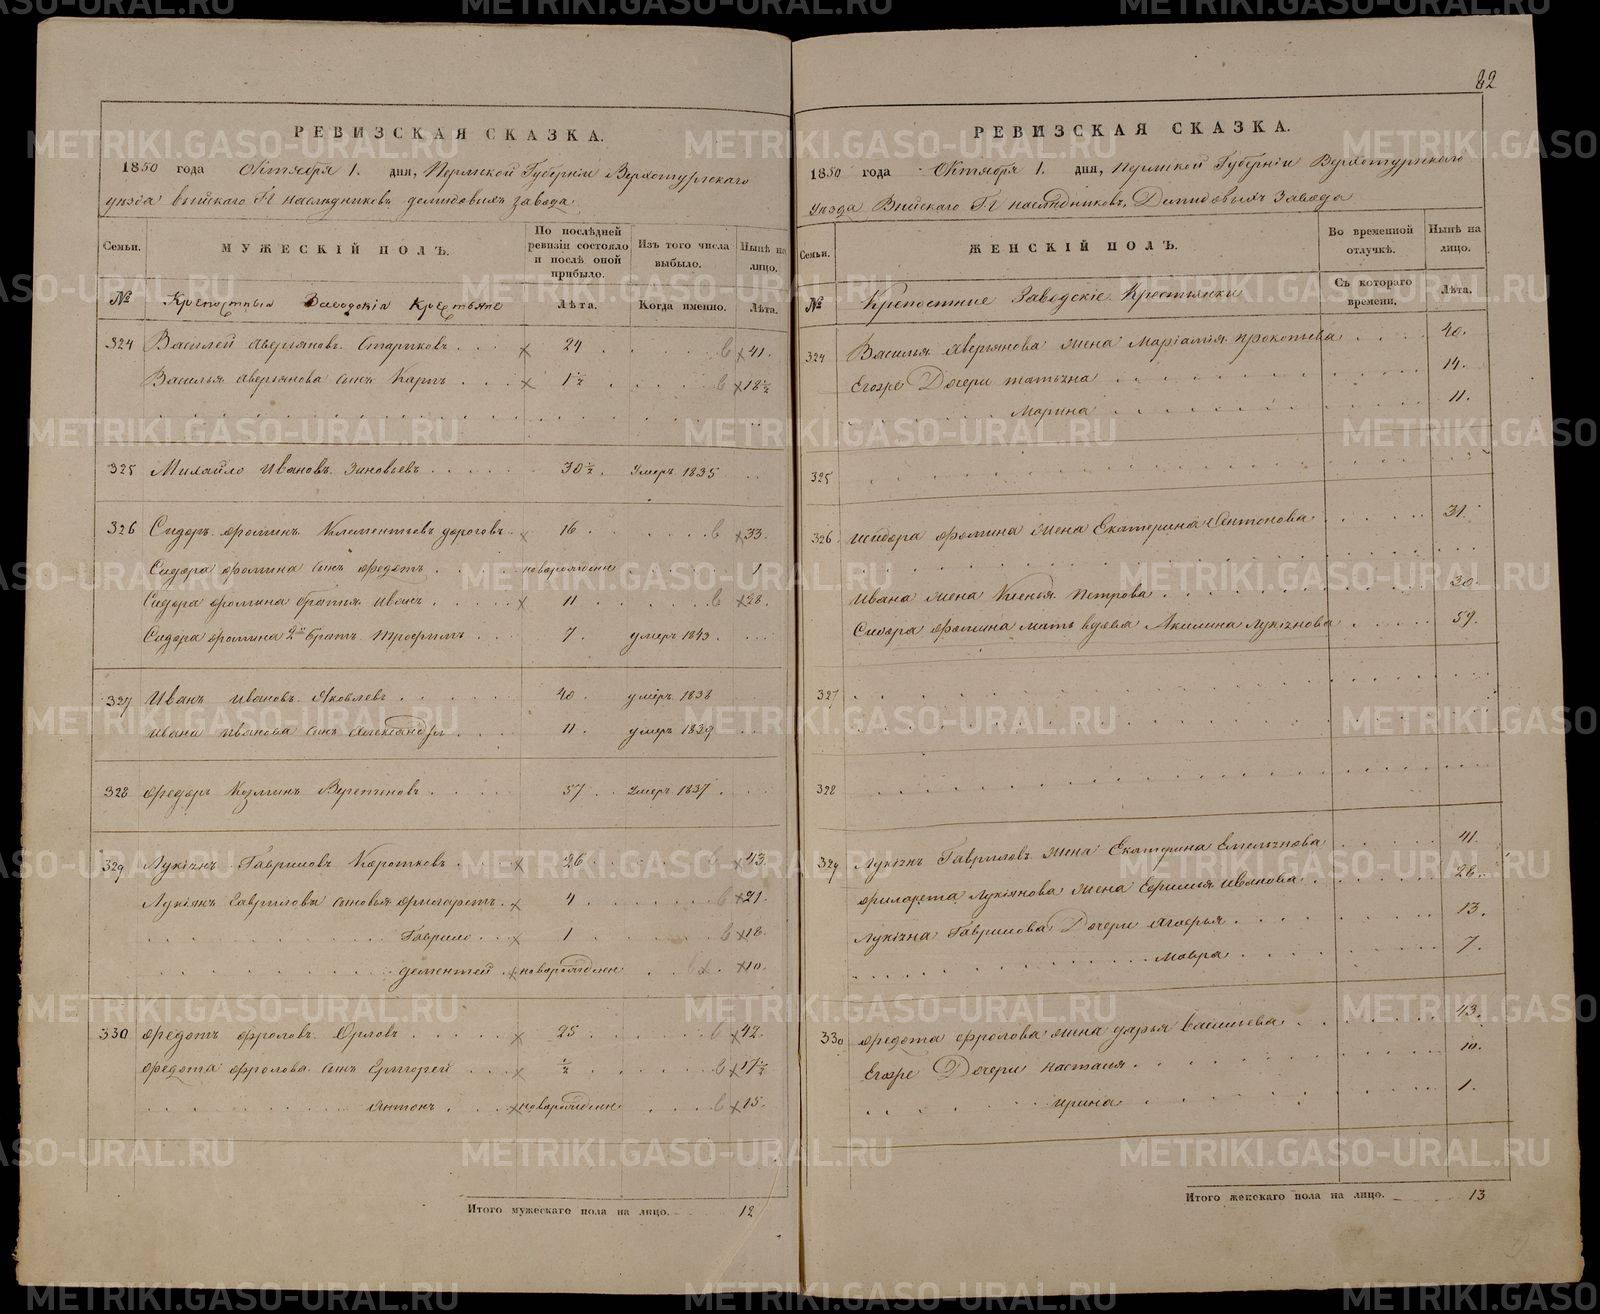 82
РЕВИЗСКАЯ СКАЗКА.
1850 года Октября 1. дня, Пермской Губернiи Верхотурскаго
уѣзда Выйскаго Гг наслѣдниковъ Демидовыхъ завода
Семьи. МУЖЕСКІЙ ПОЛЪ. По послѣдней ревизіи состояло и послѣ оной прибыло. Изъ того числа выбыло. Нынѣ на лицо.
№ Крѣпостныя Заводскія Крестьяне Лѣта. Когда именно. Лѣта.
324 Василей Аверьяновъ Стариковъ 24 41.
Василья Аверьянова сынъ Карпъ 1½ 18½
325 Михайло Ивановъ Зиновьевъ 30½. умеръ 1835
326 Сидоръ Фоминъ Климентовъ Дороговъ 16 33.
Сидора Фомина сынъ Федотъ новорожденъ 1
Сидора Фомина братья Иванъ 11 28.
Сидора Фомина 2й братъ Трофимъ 7. умеръ 1843.
327 Иванъ Ивановъ Яковлевъ 40 умеръ 1838
Ивана Иванова сынъ Александръ 11. умеръ 1839
328 Федоръ Козминъ 57 умеръ 1837.
329 Лукіянъ Гавриловъ Коротковъ 26 43.
Лукіянъ Гаврилова сыновья Филаретъ 4 21.
Гаврило 1 18.
Дементей новорожденъ 10.
330 Федотъ Фроловъ Орловъ 25 42.
Федота Фролова сынъ Григорей ½ 17½
Антонъ новорожденъ 15.
Итого мужескаго пола на лицо. 12
РЕВИЗСКАЯ СКАЗКА.
1850 года Октября 1. дня, Пермской Губерніи Верхотурскаго
уѣзда Выйскаго Гг наслѣдниковъ, Демидовыхъ Завода
Семьи. ЖЕНСКІЙ ПОЛЪ. Во временной отлучкѣ. Нынѣ на лицо.
№ Крепостние Заводскіе Крестьянки Съ котораго времени. Лѣта.
324 Василья Аверьянова жена Маріамія Прокопьева 40.
Егоже Дочери Татьяна 14.
Марина 11.
325
326. Исидора Фомина жена Екатерина Антонова 31.
Ивана жена Ксенья Петрова 30.
Сидора Фомина мать вдова Акилина Лукіянова 59.
327
328
329 Лукіянъ Гавриловъ жена Екатерина Емельянова 41.
Филарета Лукіянова жена Ефимья Иванова 26.
Лукіяна Гаврилова Дочери Агафья 13.
Мавра 7.
330 Федота Фролова жена Дарья Васильева 43.
Егоже Дочери Настасія 10.
Ирина 1.
Итого женскаго пола на лицо. 13
METRIKI.GASO-URAL.RU